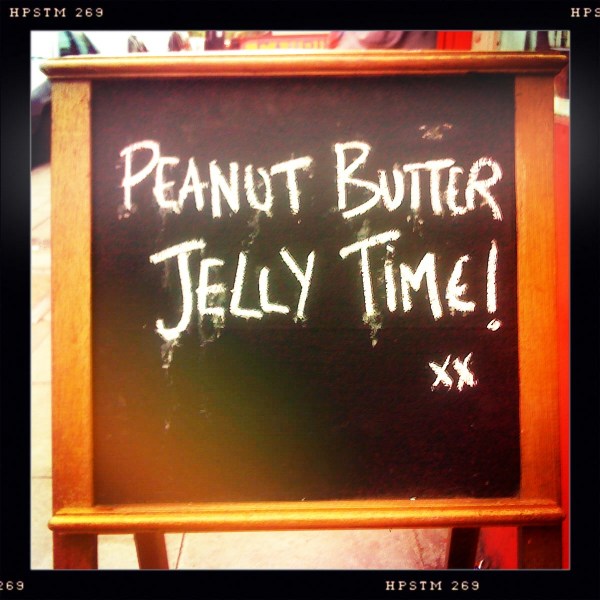 HPSTM 269
HPS
PEANUT BUTTER
JELLY TIME!
xx
269
HPSTM 269